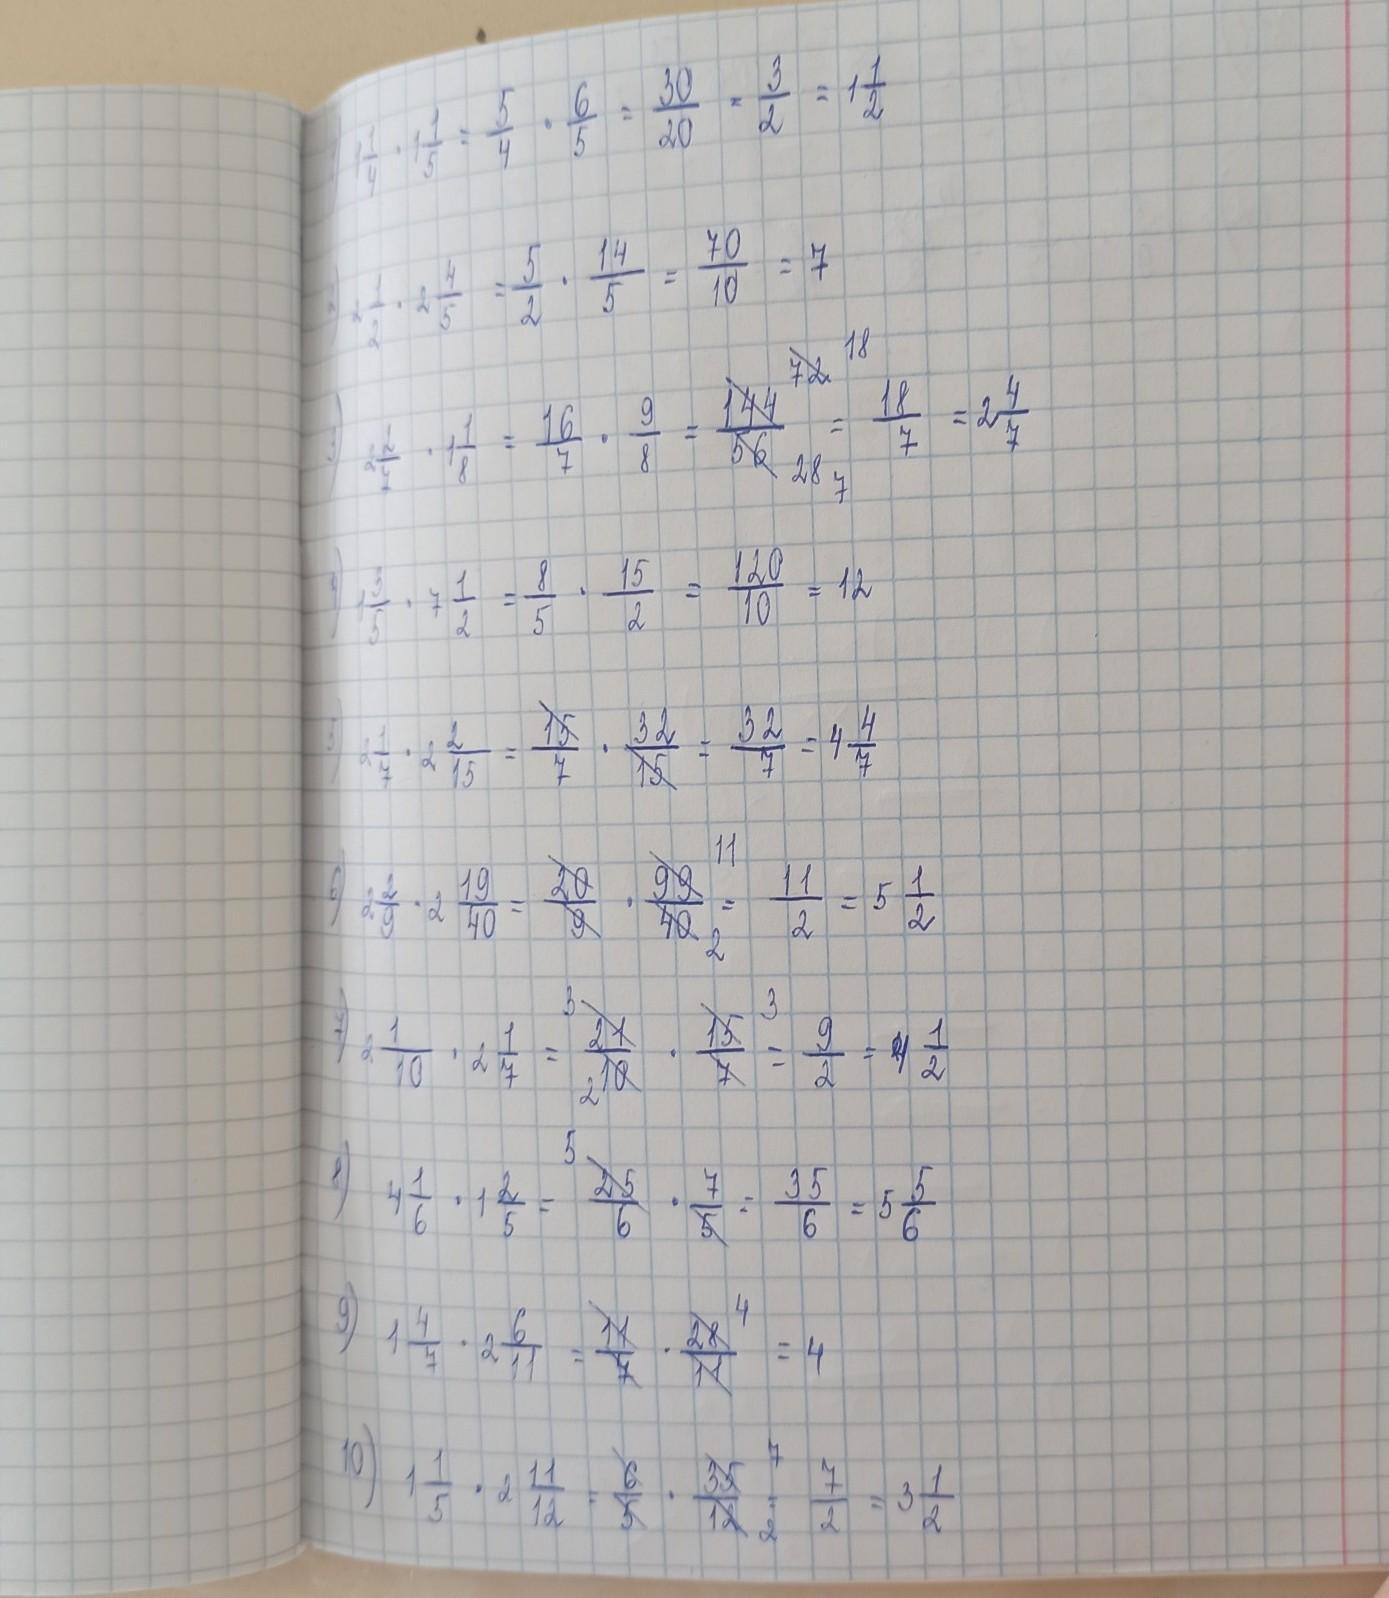 1) 1 1/4 · 1 1/5 = 5/4 · 6/5 = 30/20 = 3/2 = 1 1/2
2) 2 1/2 · 2 4/5 = 5/2 · 14/5 = 70/10 = 7
3) 2 2/7 · 1 1/8 = 16/7 · 9/8 = 144/56 72/28 18/7 = 18/7 = 2 4/7
4) 1 3/5 · 7 1/2 = 8/5 · 15/2 = 120/10 = 12
5) 2 1/7 · 2 2/15 = 15/7 · 32/15 = 32/7 = 4 4/7
6) 2 2/9 · 2 19/40 = 20/9 · 99/40 11/2 = 11/2 = 5 1/2
7) 2 1/10 · 2 1/7 = 3 27/10 2 · 15/7 3 = 9/2 = 4 1/2
8) 4 1/6 · 1 2/5 = 5 25/6 · 7/5 = 35/6 = 5 5/6
9) 1 4/7 · 2 6/11 = 11/7 · 28/11 4 = 4
10) 1 1/5 · 2 11/12 = 6/5 · 35/12 7/2 = 7/2 = 3 1/2